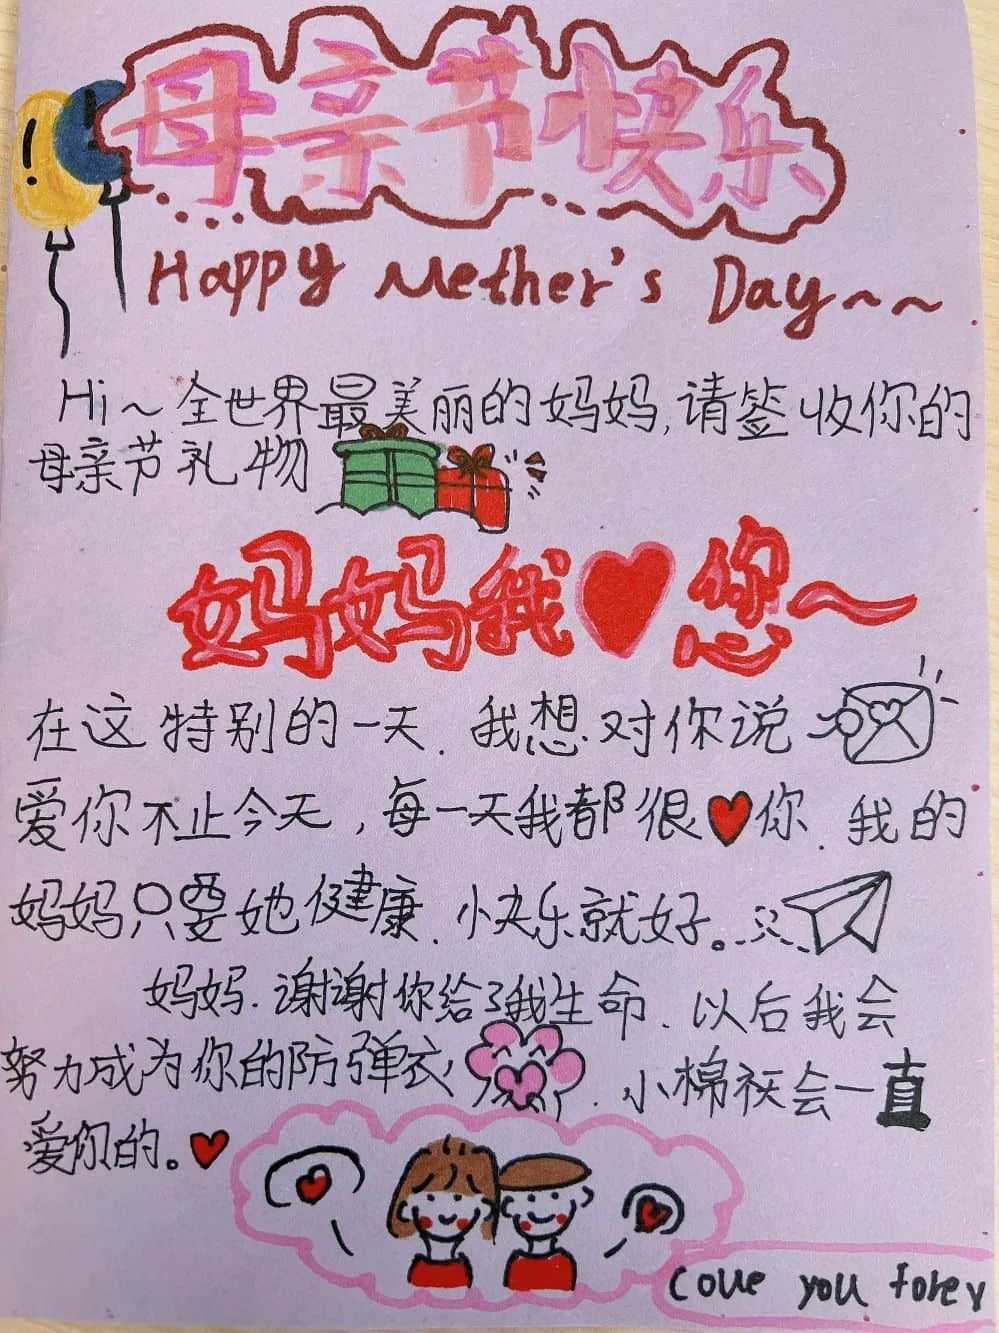 母亲节快乐
Happy Mether's Day~~
Hi~全世界最美丽的妈妈,请签收你的
母亲节礼物
妈妈我❤您~
在这特别的一天.我想对你说
爱你不止今天,每一天我都很❤你.我的
妈妈只要她健康.快乐就好。
妈妈.谢谢你给了我生命.以后我会
努力成为你的防弹衣.小棉袄会一直
爱你的。❤
Love you forev